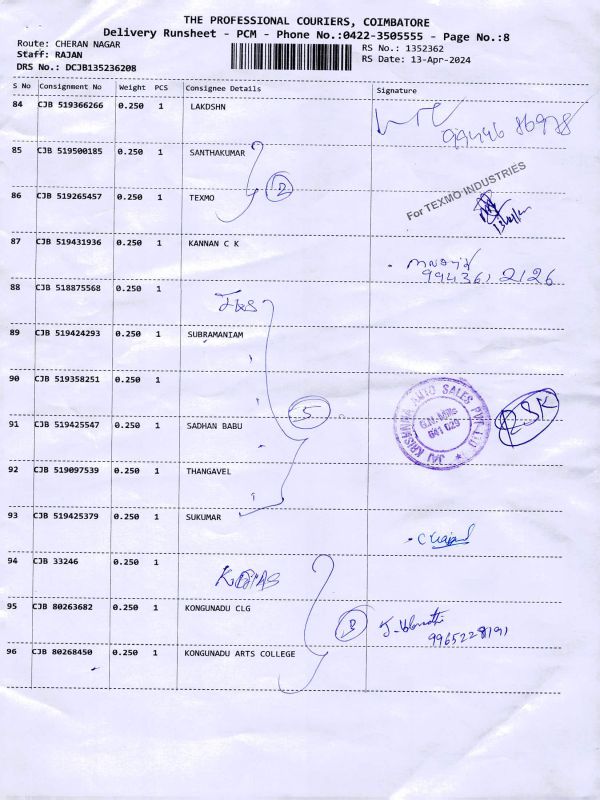 THE PROFESSIONAL COURIERS, COIMBATORE
Delivery Runsheet - PCM - Phone No.:0422-3505555 - Page No.:8
Route: CHERAN NAGAR RS No.: 1352362
Staff: RAJAN RS Date: 13-Apr-2024
DRS No.: DCJB135236208
S No Consignment No Weight PCS Consignee Details Signature
84 CJB 519366266 0.250 1 LAKDSHN
85 CJB 519500185 0.250 1 SANTHAKUMAR
2
86 CJB 519265457 0.250 1 TEXMO For TEXMO INDUSTRIES
87 CJB 519431936 0.250 1 KANNAN C K
99436 12126
88 CJB 518875568 0.250 1
89 CJB 519424293 0.250 1 SUBRAMANIAM
90 CJB 519358251 0.250 1
JAI KRISHNAA AUTO SALES PVT. LTD
G.N-Mills
641 029
5
91 CJB 519425547 0.250 1 SADHAN BABU
92 CJB 519097539 0.250 1 THANGAVEL
93 CJB 519425379 0.250 1 SUKUMAR
94 CJB 33246 0.250 1
95 CJB 80263682 0.250 1 KONGUNADU CLG
3
9965228191
96 CJB 80268450 0.250 1 KONGUNADU ARTS COLLEGE